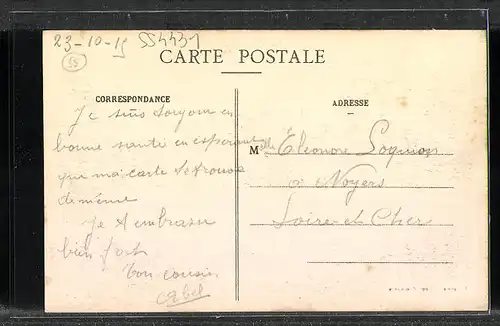 23-10-15 554431
55
CARTE POSTALE
CORRESPONDANCE
ADRESSE
Je suis en
bonne santé en espérant
que ma carte te trouve
de même
Je t embrasse
bien fort
Ton cousin
Abel
Melle Éleonore
à Noyers
Loire et Cher